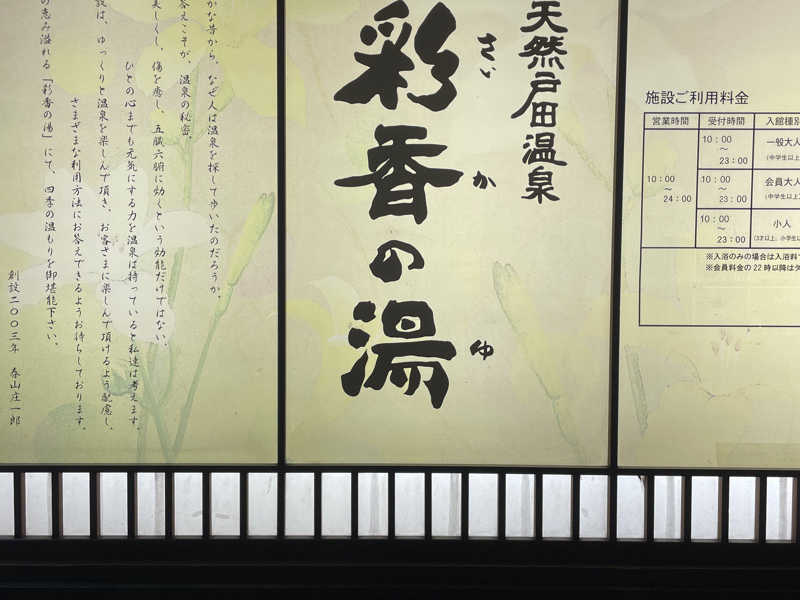 天然戸田温泉
彩香の湯
さい
か
ゆ
かな昔から、なぜ人は温泉を探して歩いたのだろうか。
答えこそが、温泉の秘密。
美しくし、傷を癒し、五臓六腑に効くという効能だけではない。
ひとの心までも元気にする力を温泉は持っていると私達は考えます。
設は、ゆっくりと温泉を楽しんで頂き、お客さまに楽しんで頂けるよう配慮し、
さまざまな利用方法にお答えできるようお待ちしております。
の恵み溢れる「彩香の湯」にて、四季の温もりを御堪能下さい。
創設二〇〇三年 春山庄一郎
施設ご利用料金
営業時間 受付時間 入館種別
10:00〜24:00
10:00〜23:00 一般大人
(中学生以上)
10:00〜23:00 会員大人
(中学生以上)
10:00〜23:00 小人
(3才以上、小学生以
※入浴のみの場合は入浴料
※会員料金の22時以降は